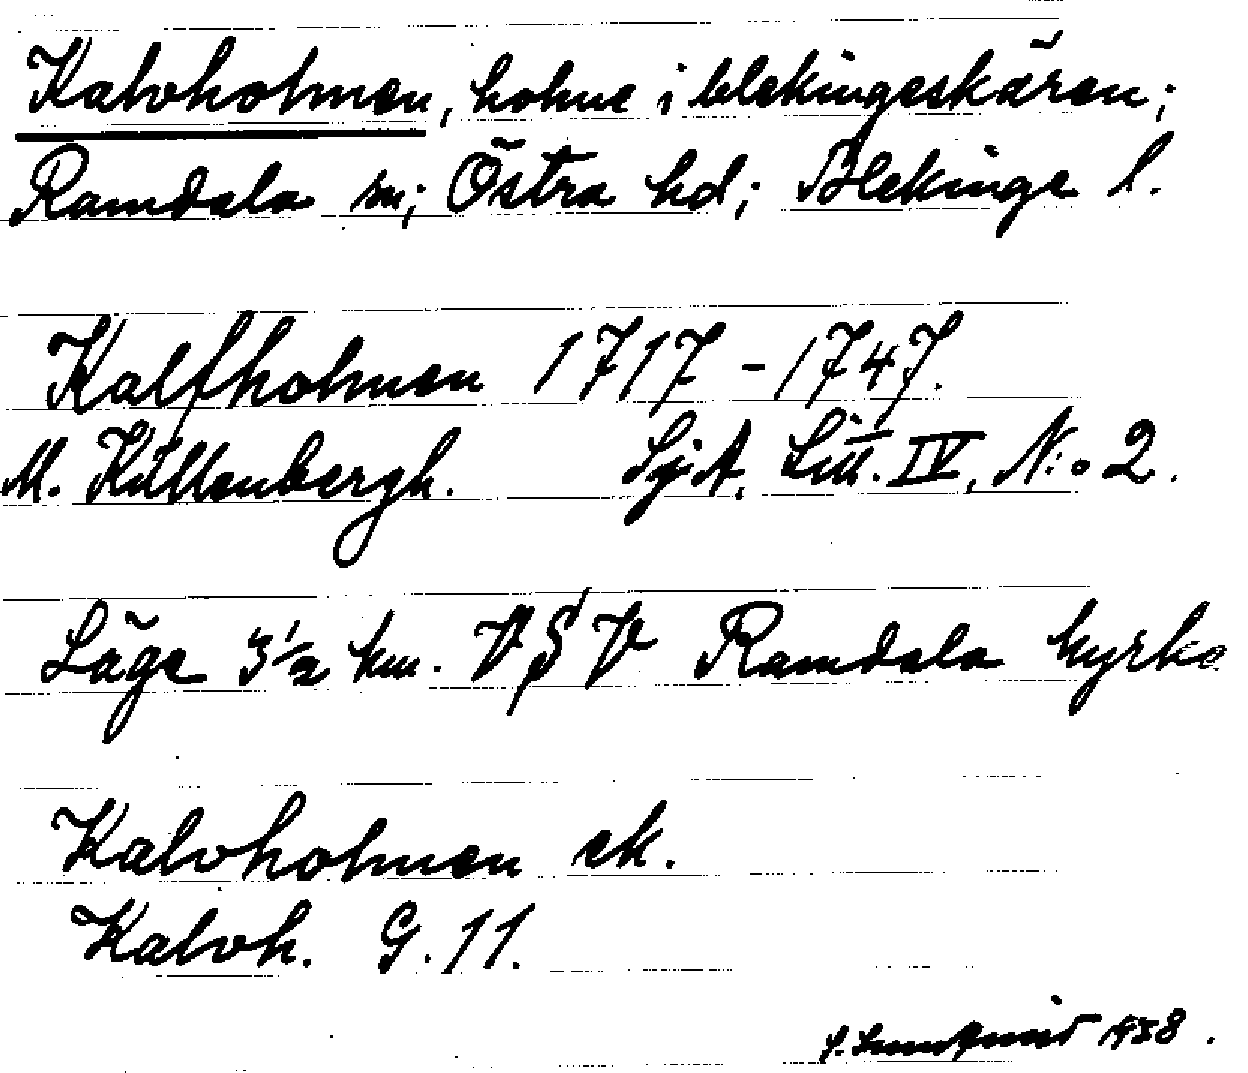 Kalvholmen, holme i blekingeskären;
Ramdala sn; Östra hd; Blekinge l.
Kalfholmen 1717-1747.
M. Küllenbergh. Sjö.A. Litt. IV, N:o 2.
Läge 3 1/2 km. VSV Ramdala kyrka
Kalvholmen ek.
Kalvh. G. 11.
1938.